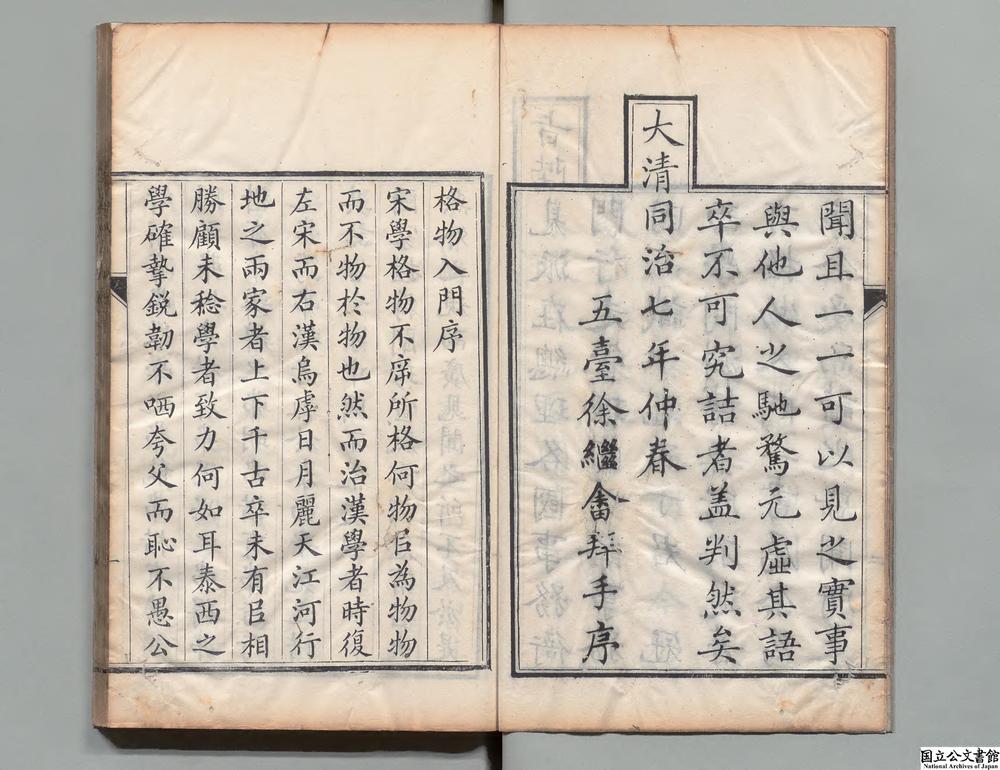 聞且一一可以見之實事
與他人之馳騖元虛其語
卒不可究詰者盖判然矣
大清同治七年仲春
五臺徐繼畬拜手序
格物入門序
宋學格物不㡿所格何物㠯為物物
而不物於物也然而治漢學者時復
左宋而右漢烏虖日月麗天江河行
地之兩家者上下千古卒未有㠯相
勝顧未稔學者致力何如耳泰西之
學確摯銳韌不哂夸父而恥不愚公
国立公文書館
National Archives of Japan